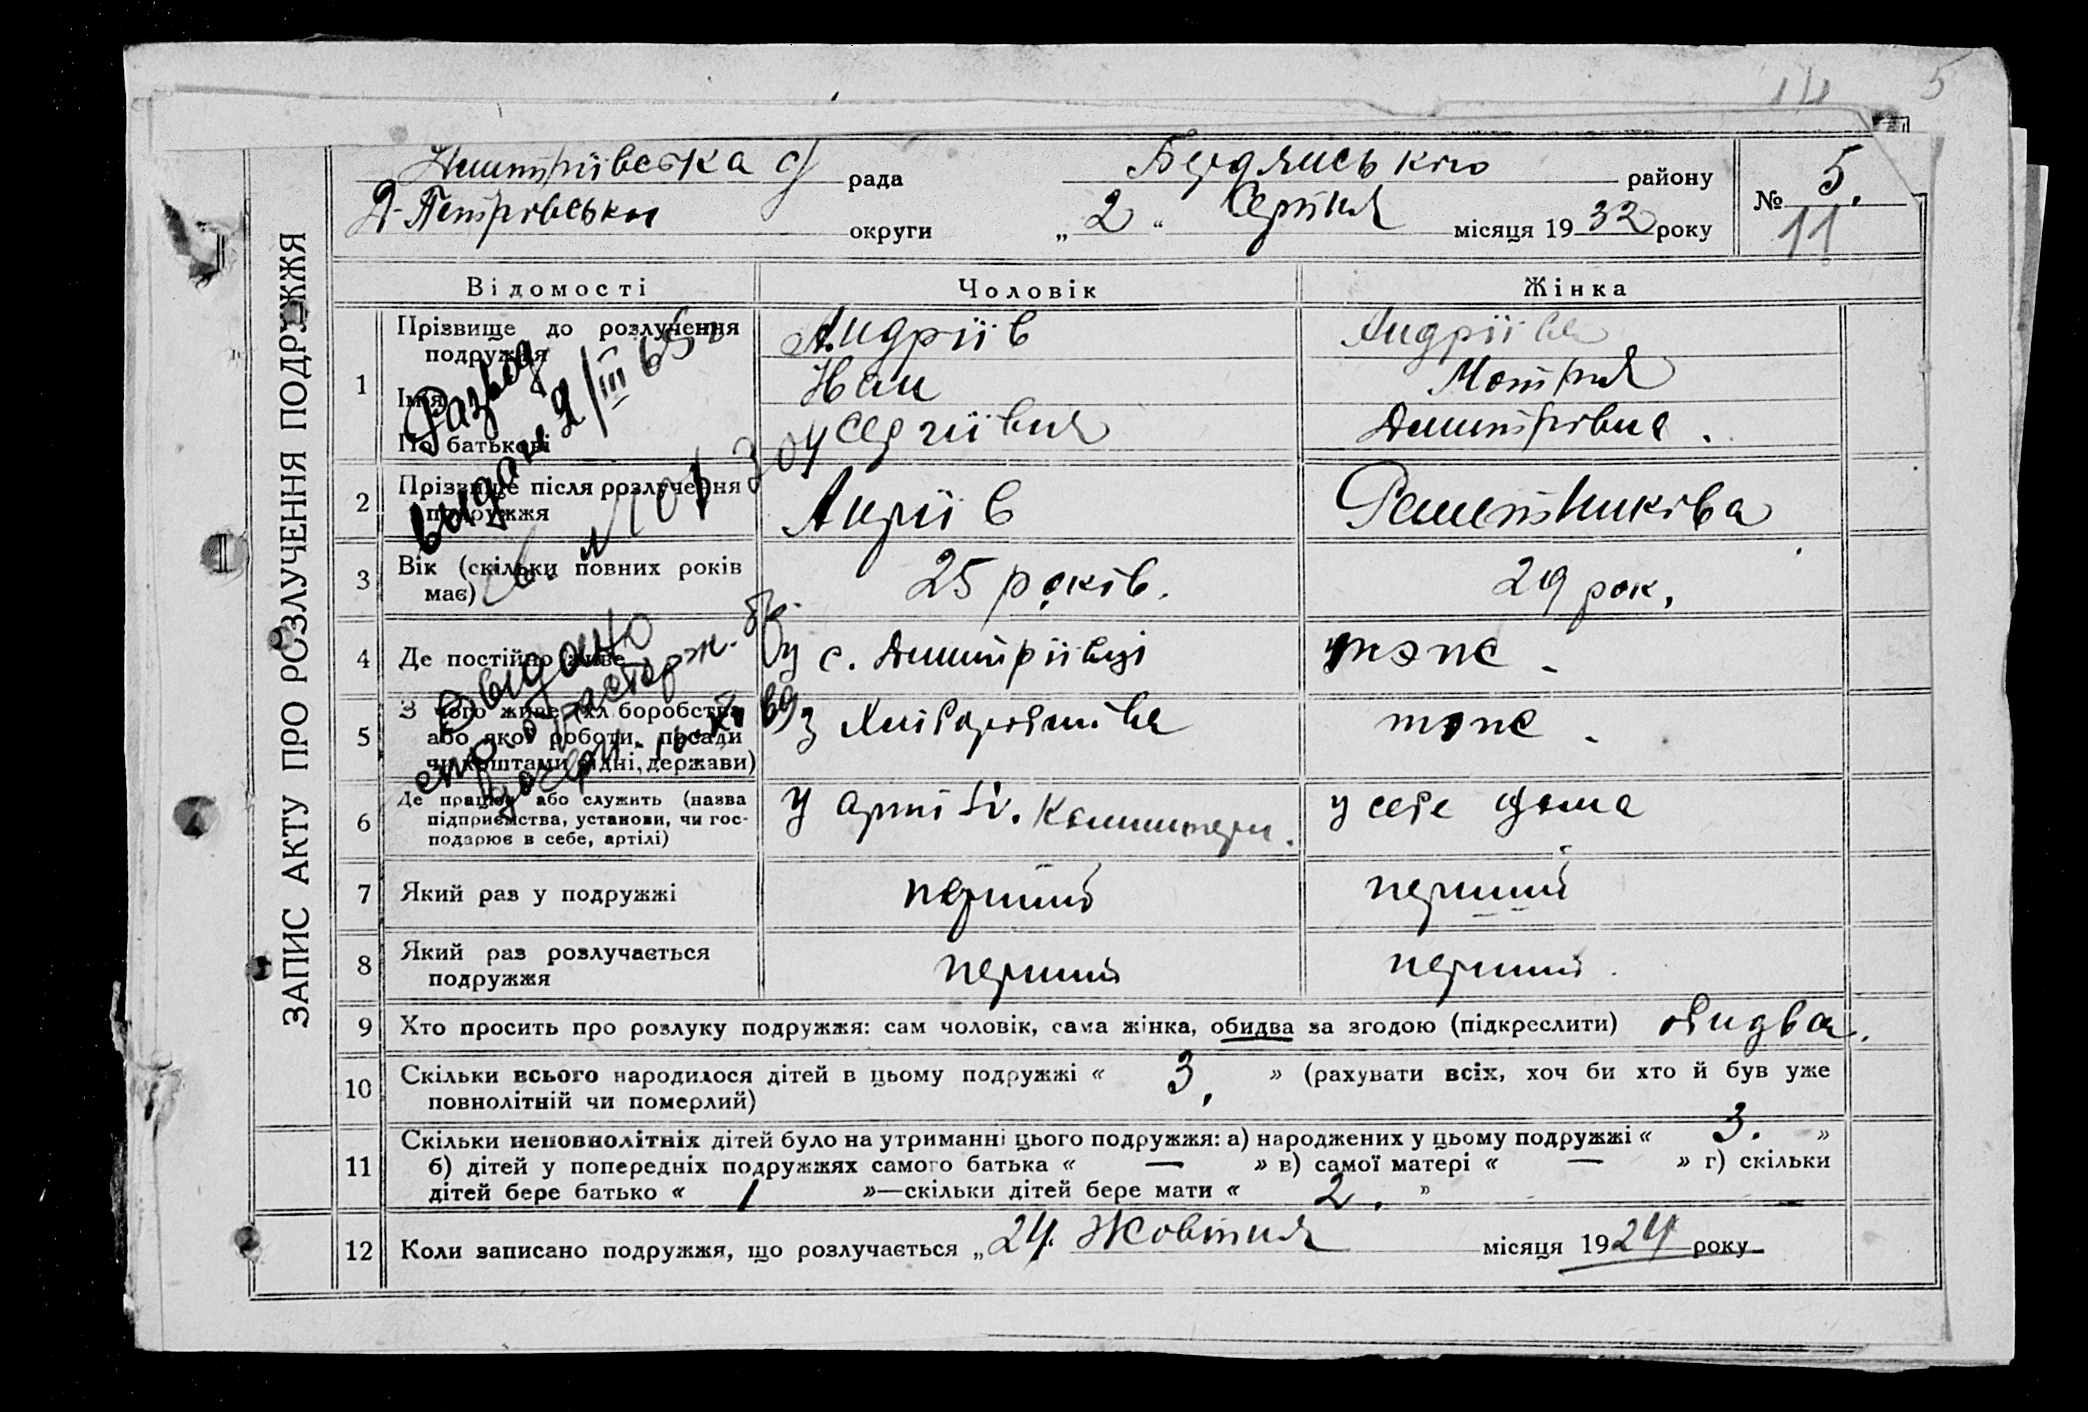 14 5
ЗАПИС АКТУ ПРО РОЗЛУЧЕННЯ ПОДРУЖЖЯ
Дмитріївська с/ рада Бердянського району № 5.
Д-Петрівська округи „ 2 “ Серпня місяця 1932 року 11
Відомості Чоловік Жінка
1 Прізвище до розлучення подружжя Андріїв Андріїва
Імя Іван Мотрия
По батькові Сергіївич Дмитрівна.
2 Прізвище після розлучення подружжя Анріїв Решетниківа
3 Вік (скільки повних років має) 25 років. 29 рок.
4 Де постійно живе у с. Дмитріївці тоже.
5 З чого живе (хл боробства або якої роботи, посади чи коштами рідні, держави) з Хліборобства тоже.
6 Де працює або служить (назва підприємства, установи, чи господарює в себе, артілі) У артілі у себе дома
7 Який раз у подружжі перший перший
8 Який раз розлучається подружжя перший перший.
9 Хто просить про розлуку подружжя: сам чоловік, сама жінка, обидва за згодою (підкреслити) обидва.
10 Скільки всього народилося дітей в цьому подружжі « 3. » (рахувати всіх, хоч би хто й був уже
повнолітній чи померлий)
11 Скільки неповнолітніх дітей було на утриманні цього подружжя: а) народжених у цьому подружжі « 3. »
б) дітей у попередніх подружжях самого батька « — » в) самої матері « — » г) скільки
дітей бере батько « 1 »—скільки дітей бере мати « 2. »
12 Коли записано подружжя, що розлучається „ 24. Жовтня місяця 1924 року
Развод
выдан 9/III 65 г
Выдано
спр. о расторж. бр.